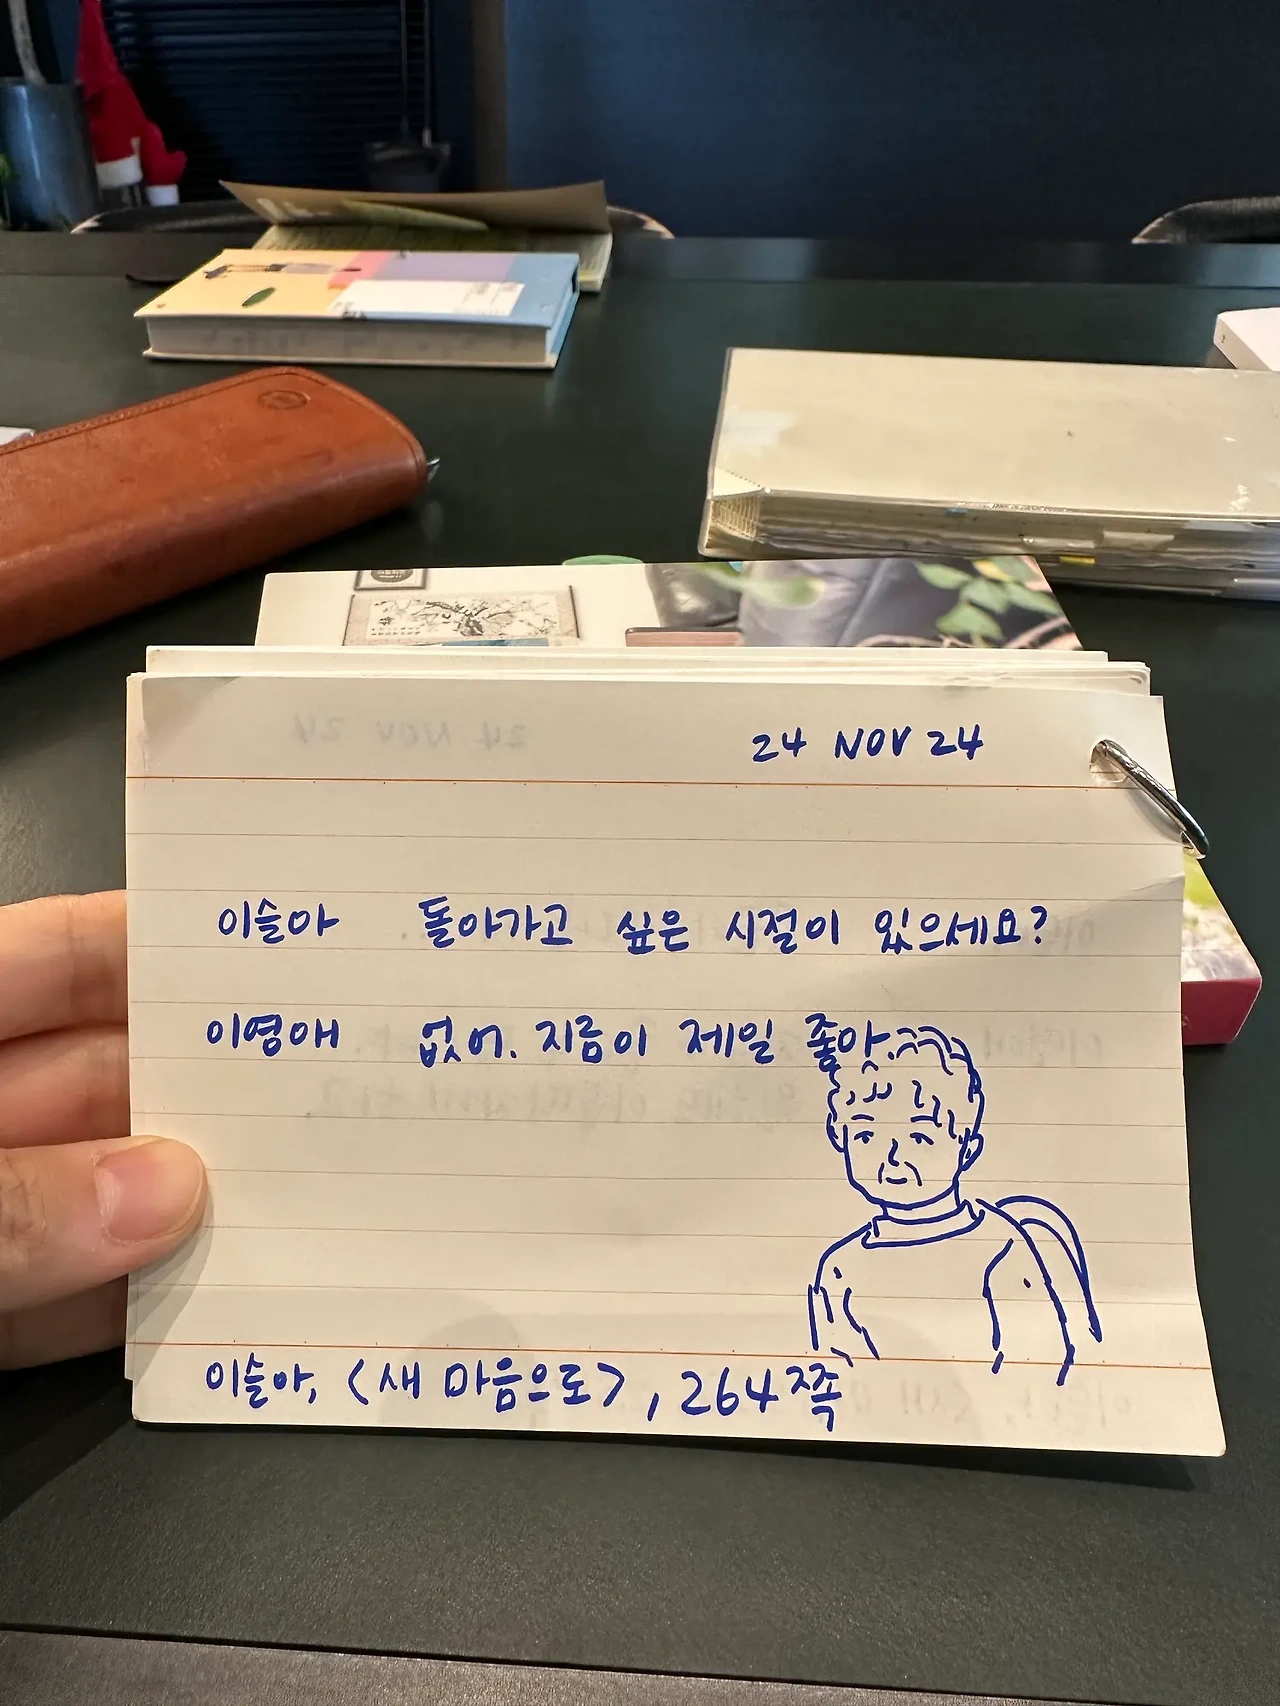 24 NOV 24
이슬아 돌아가고 싶은 시절이 있으세요?
이영애 없어. 지금이 제일 좋아.
이슬아, <새 마음으로>, 264쪽